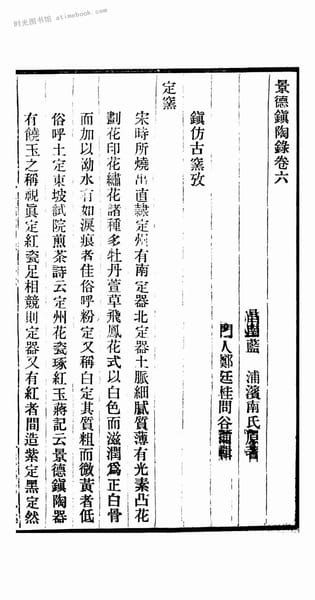 时光图书馆 atimebook.com
景德鎮陶錄卷六
昌南藍 浦濱南氏原著
門人鄭廷桂問谷補輯
鎮仿古窰攷
定窰
宋時所燒出直隸定州有南定器北定器土脈細膩質薄有光素凸花
劃花印花繡花諸種多牡丹萱草飛鳳花式以白色而滋潤爲正白骨
而加以泑水有如淚痕者佳俗呼粉定又稱白定其質粗而微黃者低
俗呼土定東坡試院煎茶詩云定州花瓷琢紅玉蔣記云景德鎮陶器
有饒玉之稱視眞定紅瓷足相競則定器又有紅者間造紫定黑定然